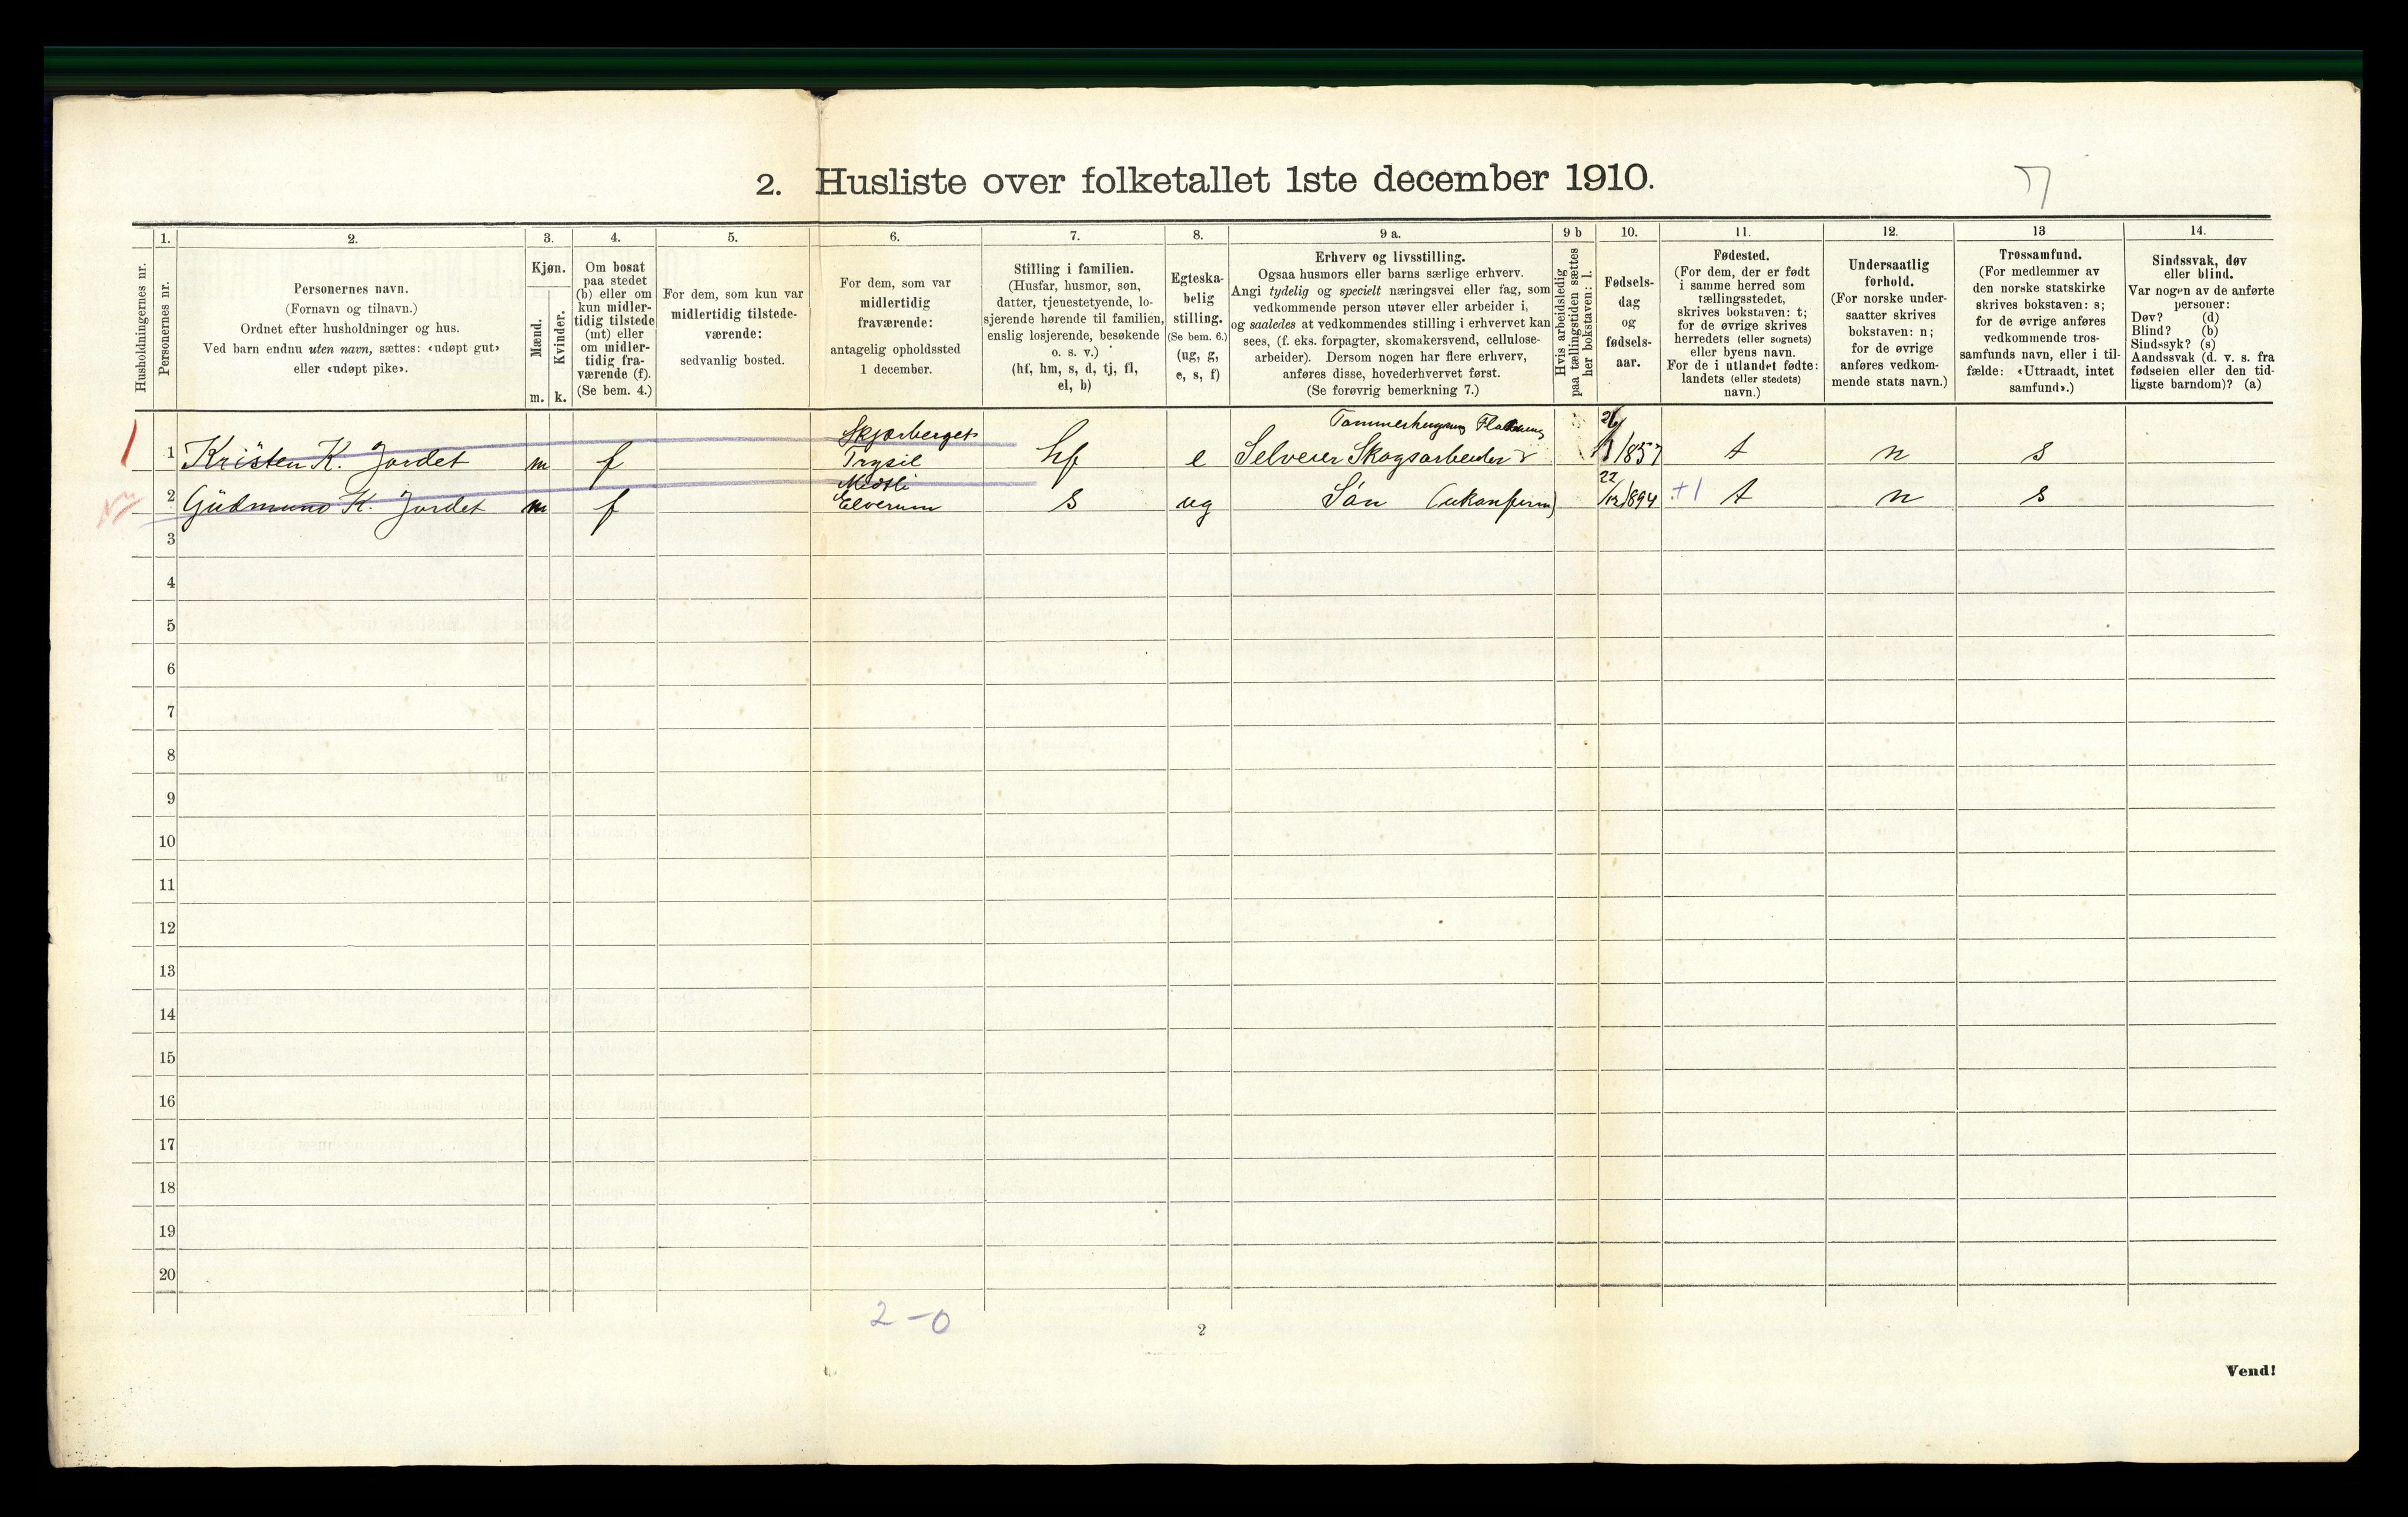 2. Husliste over folketallet 1ste december 1910.
7
Husholdningernes nr.
1.
Personernes nr.
2.
Personernes navn.
(Fornavn og tilnavn.)
Ordnet efter husholdninger og hus.
Ved barn endnu uten navn, sættes: «udøpt gut»
eller «udøpt pike».
3.
Kjøn.
Mænd.
Kvinder.
m. k.
4.
Om bosat
paa stedet
(b) eller om
kun midler-
tidig tilstede
(mt) eller
om midler-
tidig fra-
værende (f).
(Se bem. 4.)
5.
For dem, som kun var
midlertidig tilstede-
værende:
sedvanlig bosted.
6.
For dem, som var
midlertidig
fraværende:
antagelig opholdssted
1 december.
7.
Stilling i familien.
(Husfar, husmor, søn,
datter, tjenestetyende, lo-
sjerende hørende til familien,
enslig losjerende, besøkende
o. s. v.)
(hf, hm, s, d, tj, fl,
el, b)
8.
Egteska-
belig
stilling.
(Se bem. 6.)
(ug, g,
e, s, f)
9 a.
Erhverv og livsstilling.
Ogsaa husmors eller barns særlige erhverv.
Angi tydelig og specielt næringsvei eller fag, som
vedkommende person utøver eller arbeider i,
og saaledes at vedkommendes stilling i erhvervet kan
sees, (f. eks. forpagter, skomakersvend, cellulose-
arbeider). Dersom nogen har flere erhverv,
anføres disse, hovederhvervet først.
(Se forøvrig bemerkning 7.)
9 b
Hvis arbeidsledig
paa tællingstiden sættes
her bokstaven: l.
10.
Fødsels-
dag
og
fødsels-
aar.
11.
Fødested.
(For dem, der er født
i samme herred som
tællingsstedet,
skrives bokstaven: t;
for de øvrige skrives
herredets (eller sognets)
eller byens navn.
For de i utlandet fødte:
landets (eller stedets)
navn.)
12.
Undersaatlig
forhold.
(For norske under-
saatter skrives
bokstaven: n;
for de øvrige
anføres vedkom-
mende stats navn.)
13
Trossamfund.
(For medlemmer av
den norske statskirke
skrives bokstaven: s;
for de øvrige anføres
vedkommende tros-
samfunds navn, eller i til-
fælde: «Uttraadt, intet
samfund».)
14.
Sindssvak, døv
eller blind.
Var nogen av de anførte
personer:
Døv? (d)
Blind? (b)
Sindssyk? (s)
Aandssvak (d. v. s. fra
fødselen eller den tid-
ligste barndom)? (a)
Skjærberget
1 Kristen K. Jordet m f Trysil hf e Selveier Skogsarbeider 1857 t n s
2 Güdmund K. Jordet m f Elverum s ug Sön (ukonfirm) 22/12 1894 +1 t n s
3
4
5
6
7
8
9
10
11
12
13
14
15
16
17
18
19
20
2 - 0
2
Vend!